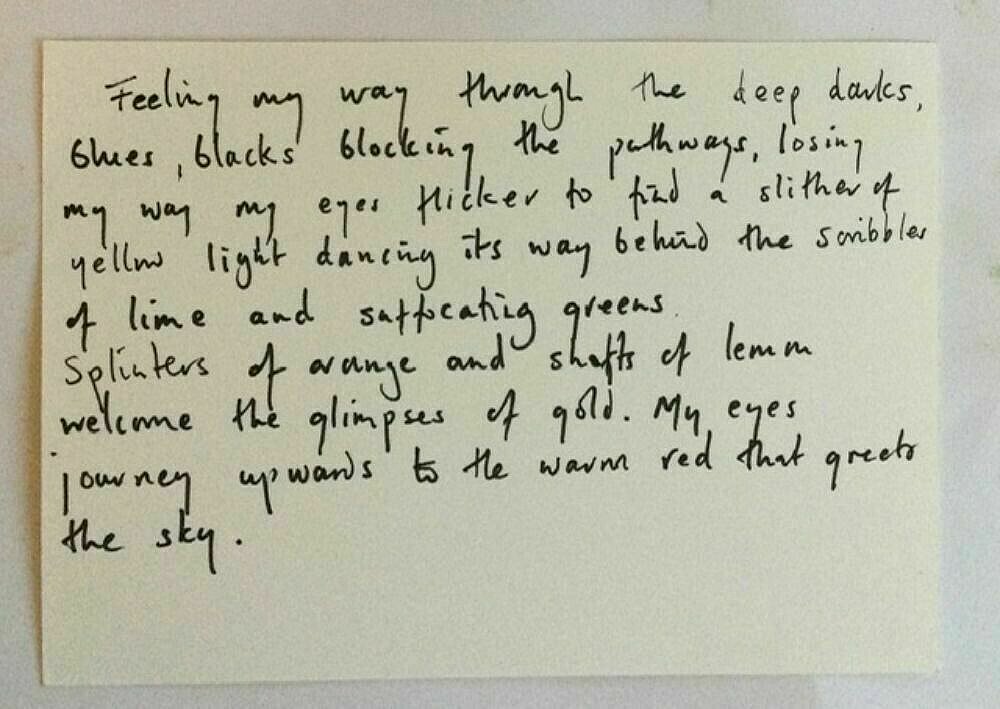 Feeling my way through the deep darks,
blues, blacks blocking the pathways, losing
my way my eyes flicker to find a slither of
yellow light dancing its way behind the scribbles
of lime and suffocating greens.
Splinters of orange and shafts of lemon
welcome the glimpses of gold. My eyes
journey upwards to the warm red that greets
the sky.